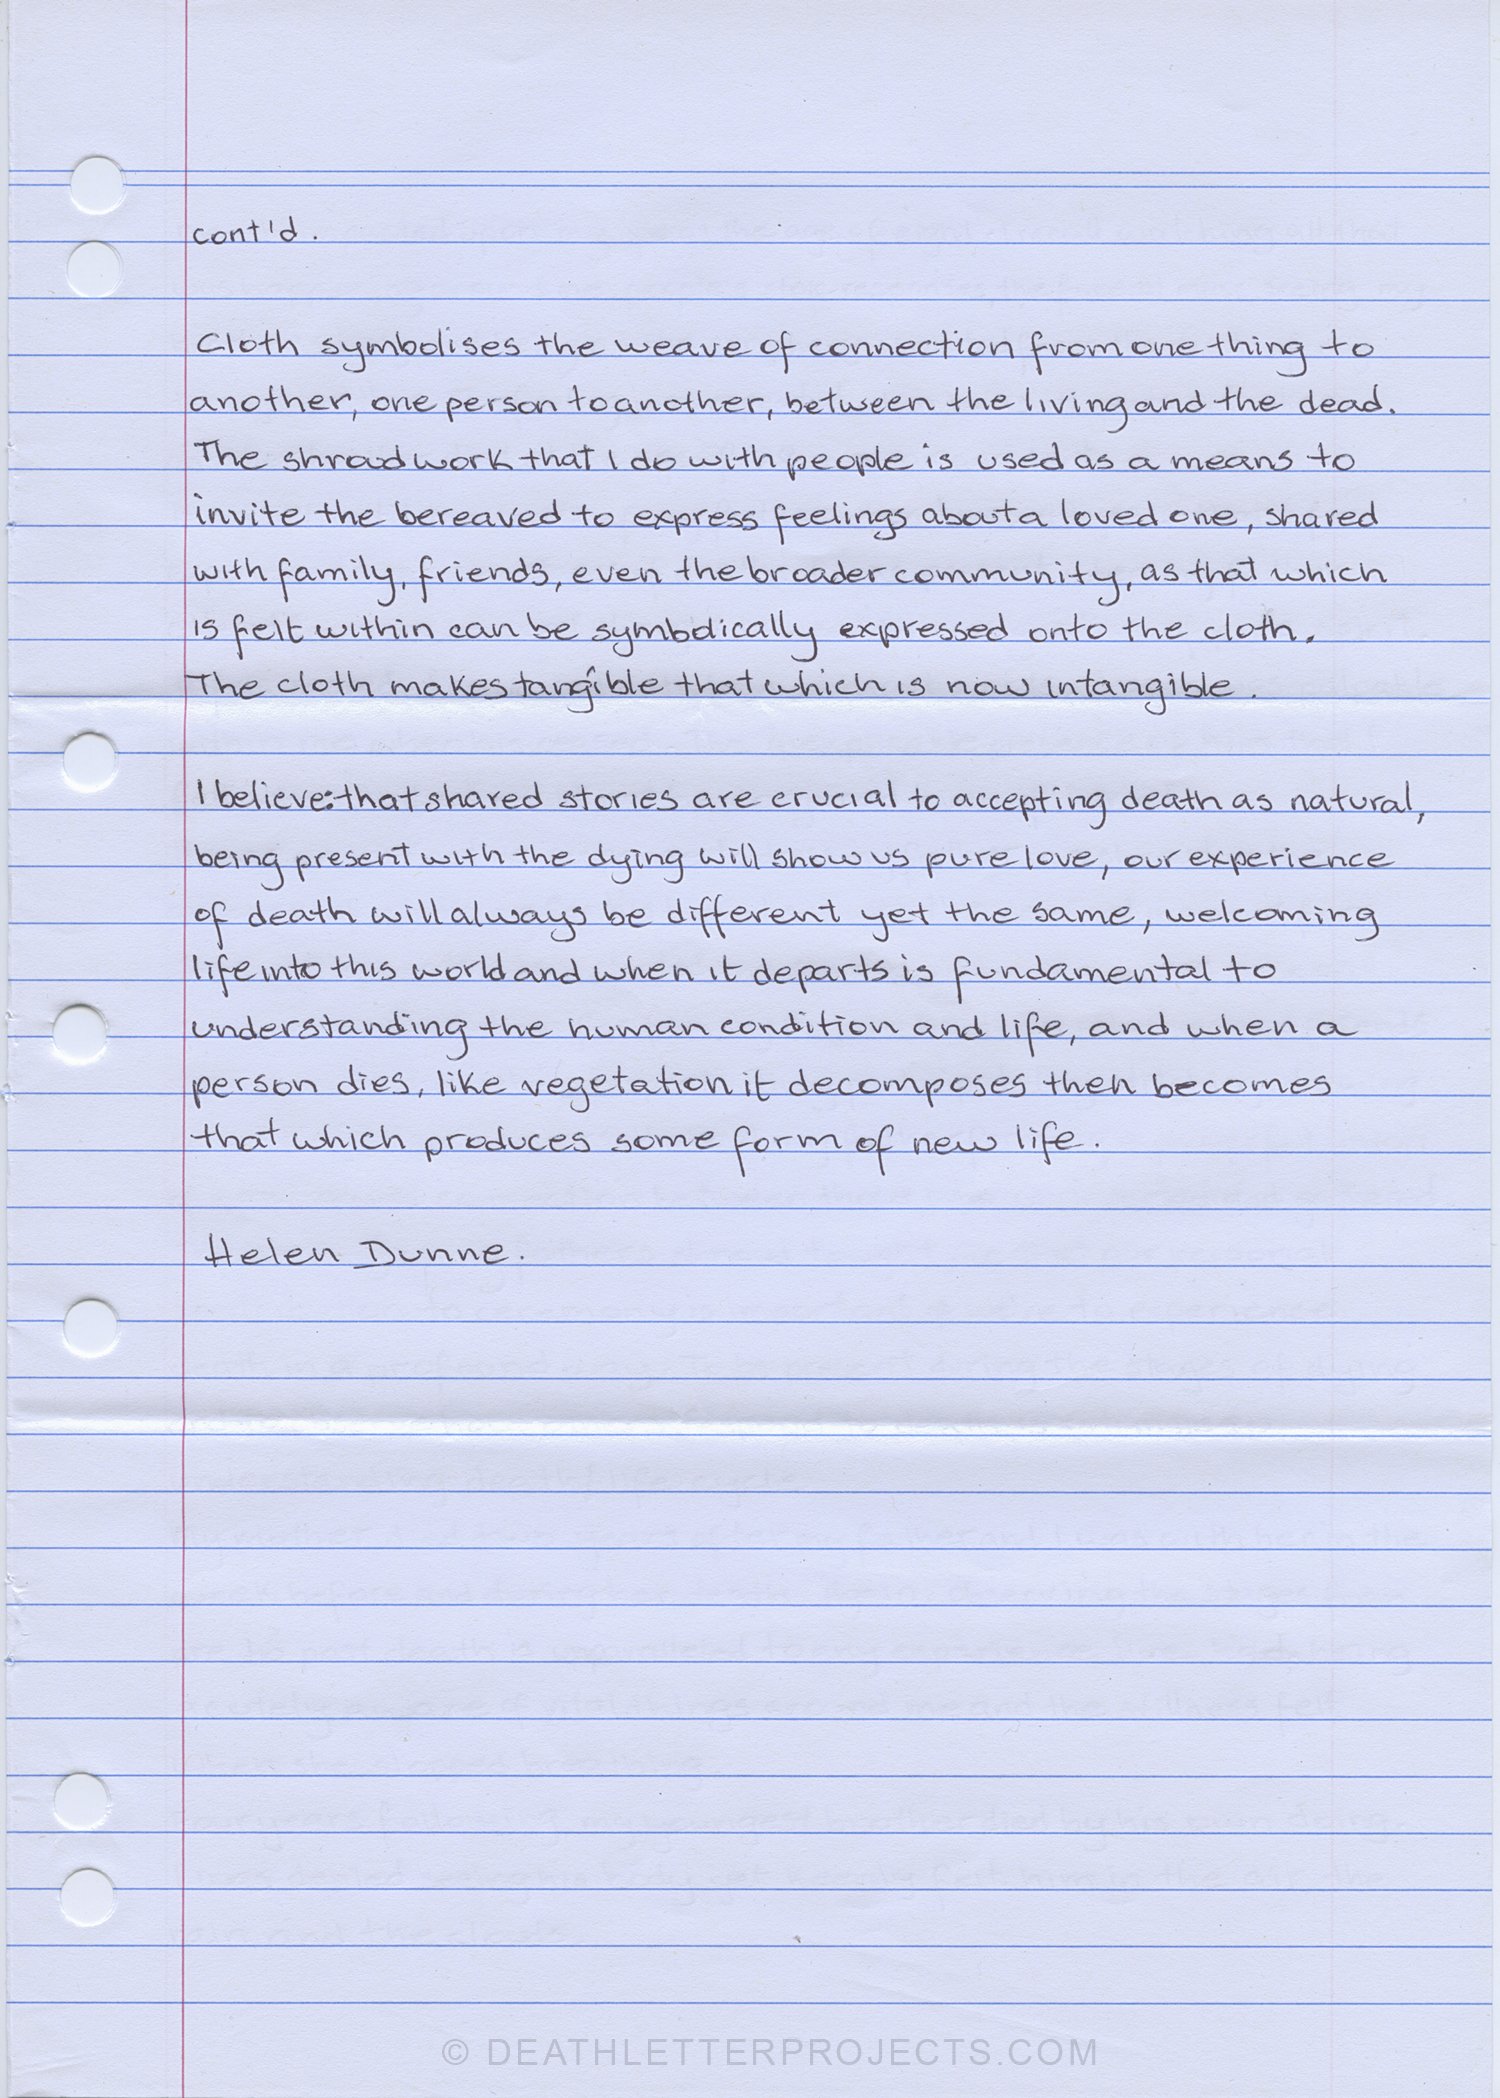 cont'd.
Cloth symbolises the weave of connection from one thing to
another, one person to another, between the living and the dead.
The shroud work that I do with people is used as a means to
invite the bereaved to express feelings about a loved one, shared
with family, friends, even the broader community, as that which
is felt within can be symbolically expressed onto the cloth.
The cloth makes tangible that which is now intangible.
I believe: that shared stories are crucial to accepting death as natural,
being present with the dying will show us pure love, our experience
of death will always be different yet the same, welcoming
life into this world and when it departs is fundamental to
understanding the human condition and life, and when a
person dies, like vegetation it decomposes then becomes
that which produces some form of new life.
Helen Dunne.
© DEATHLETTERPROJECTS.COM